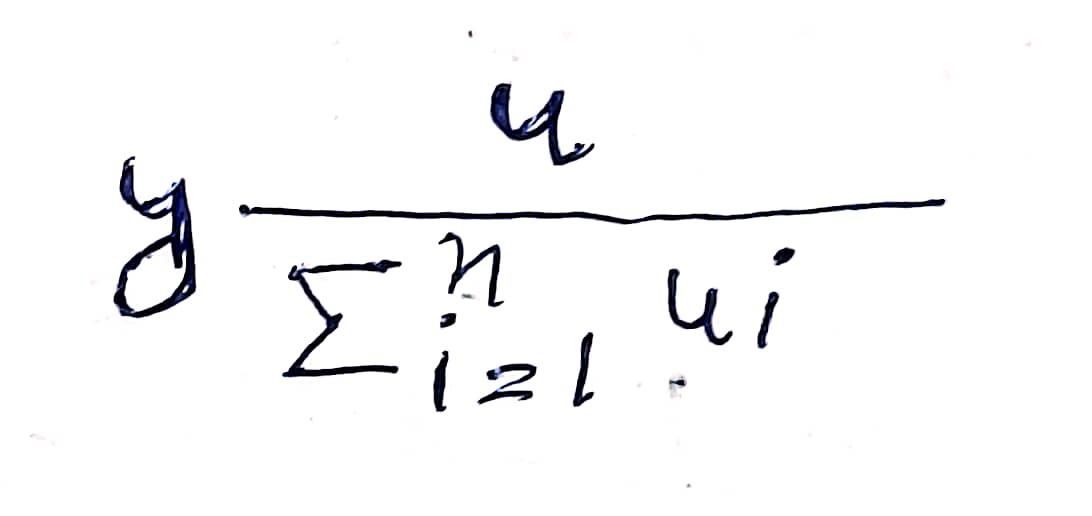 y \frac{u}{\sum_{i=1}^{n} u i}